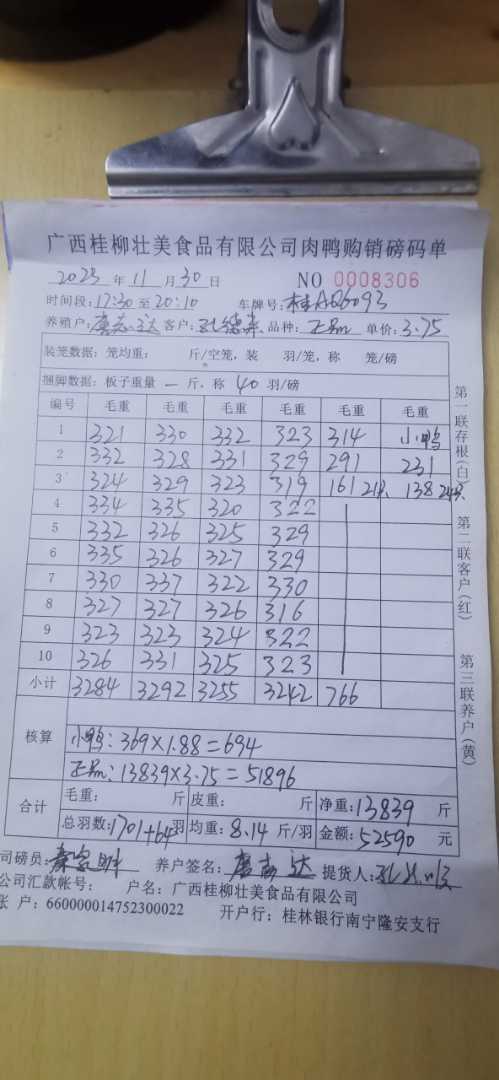 广西桂柳壮美食品有限公司肉鸭购销磅码单
2025 年 11 月 30 日 NO 0008306
时间段:17:30 至 20:10 车牌号:桂AQ6093
养殖户: 达 客户: 品种: 正品 单价:3.75
装笼数据: 笼均重: 斤/空笼, 装 羽/笼, 称 笼/磅
捆脚数据: 板子重量 一 斤, 称 40 羽/磅
编号 毛重 毛重 毛重 毛重 毛重 毛重
1 321 330 332 323 314 小鸭
2 332 328 331 329 291 231
3 324 329 323 319 161 21只 138 24只
4 334 335 320 322
5 332 326 325 329
6 335 326 327 329
7 330 337 322 330
8 327 327 326 316
9 323 323 324 322
10 326 331 325 323
小计 3284 3292 3255 3242 766
核算
小鸭:369×1.88=694
正品:13839×3.75=51896
合计 毛重: 斤 皮重: 斤 净重:13839 斤
总羽数:1701+64羽 均重:8.14 斤/羽 金额:52590 元
司磅员: 养户签名: 达 提货人:
公司汇款帐号: 户名:广西桂柳壮美食品有限公司
账 户: 660000014752300022 开户行: 桂林银行南宁隆安支行
第一联存根(白) 第二联客户(红) 第三联养户(黄)